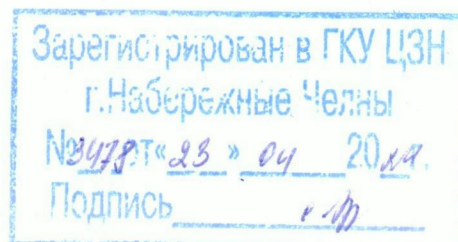 Зарегистрирован в ГКУ ЦЗН
г.Набережные Челны
№3478 от « 23 » 04 20
Подпись